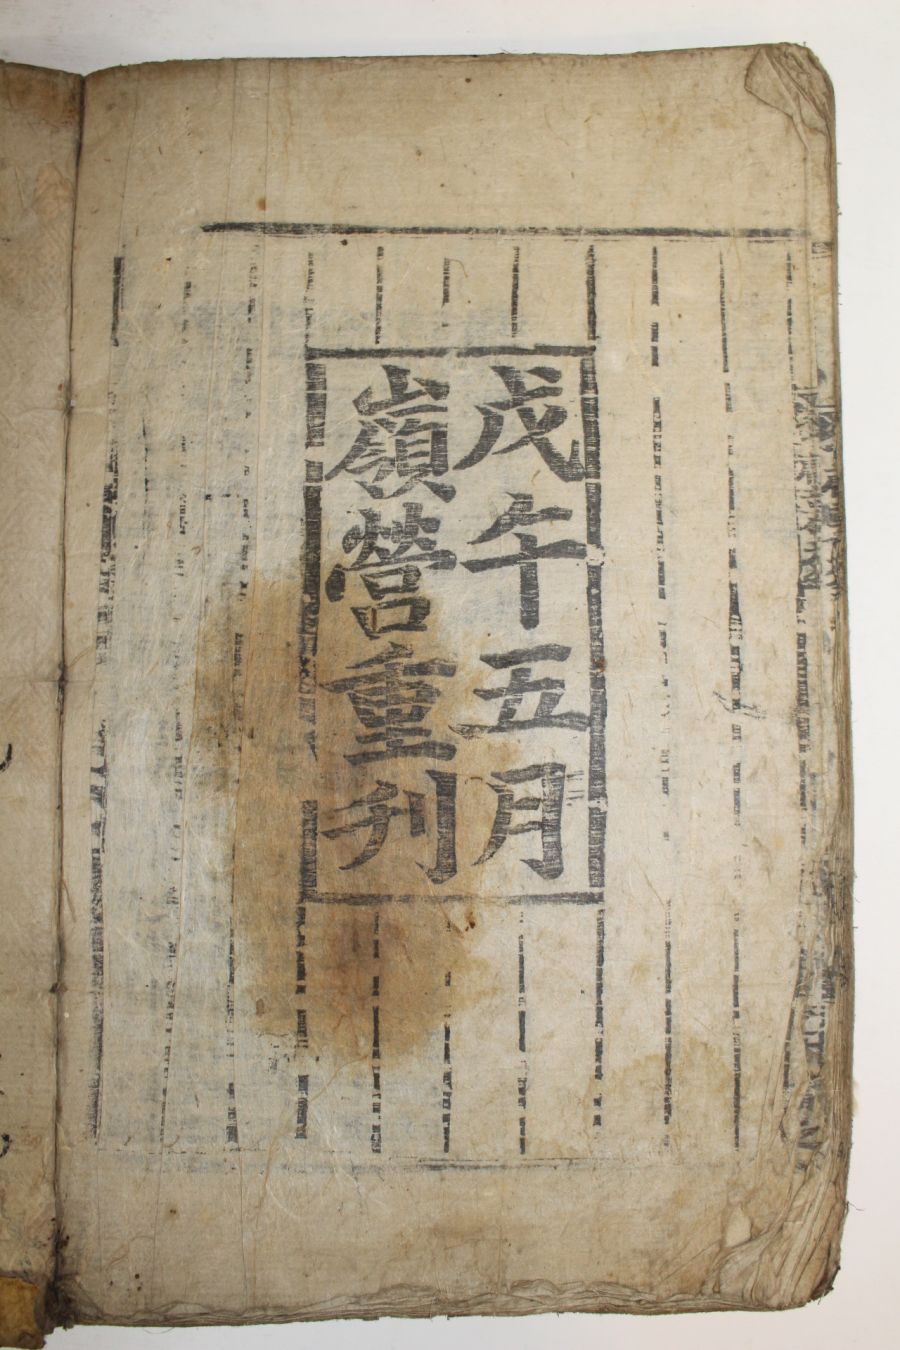 戊午五月
嶺營重刊